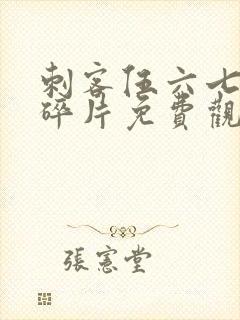 刺客伍六七
碎片免費觀
張憲堂